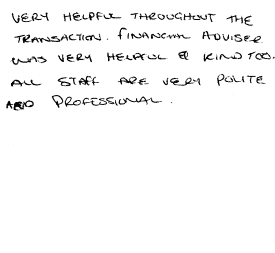 VERY HELPFUL THROUGHOUT THE
TRANSACTION. FINANCIAL ADVISER
WAS VERY HELPFUL & KIND TOO.
ALL STAFF ARE VERY POLITE
AND PROFESSIONAL.